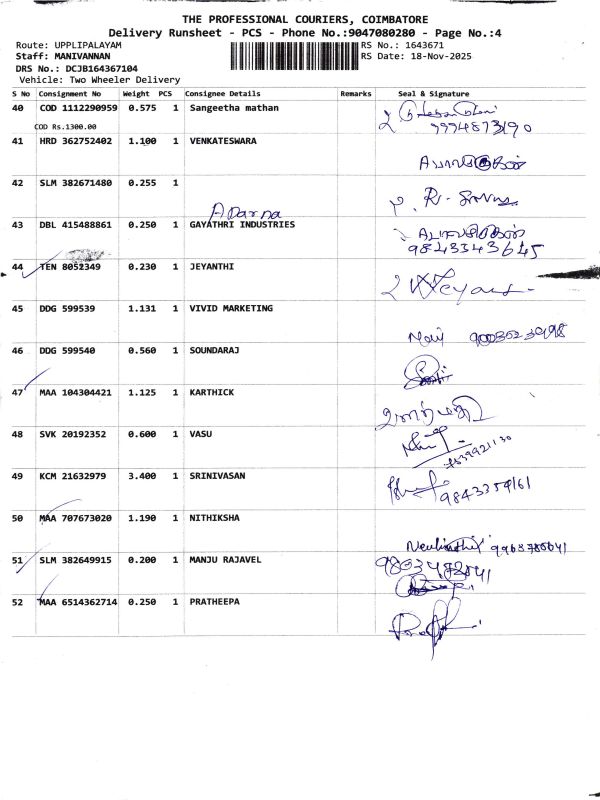 THE PROFESSIONAL COURIERS, COIMBATORE
Delivery Runsheet - PCS - Phone No.:9047080280 - Page No.:4
Route: UPPLIPALAYAM RS No.: 1643671
Staff: MANIVANNAN RS Date: 18-Nov-2025
DRS No.: DCJB164367104
Vehicle: Two Wheeler Delivery
S No Consignment No Weight PCS Consignee Details Remarks Seal & Signature
40 COD 1112290959 0.575 1 Sangeetha mathan
COD Rs.1300.00 9994873190
41 HRD 362752402 1.100 1 VENKATESWARA
42 SLM 382671480 0.255 1
43 DBL 415488861 0.250 1 GAYATHRI INDUSTRIES
9843343645
44 TEN 8052349 0.230 1 JEYANTHI
45 DDG 599539 1.131 1 VIVID MARKETING
46 DDG 599540 0.560 1 SOUNDARAJ
47 MAA 104304421 1.125 1 KARTHICK
48 SVK 20192352 0.600 1 VASU
7539921130
49 KCM 21632979 3.400 1 SRINIVASAN
50 MAA 707673020 1.190 1 NITHIKSHA
51 SLM 382649915 0.200 1 MANJU RAJAVEL
52 MAA 6514362714 0.250 1 PRATHEEPA